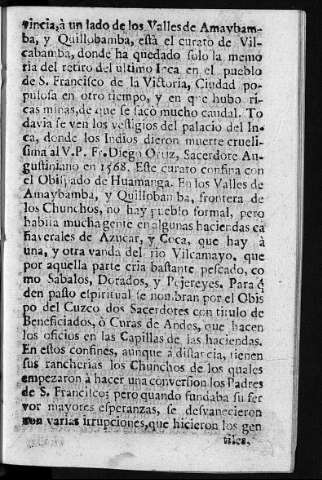 vincia, à un lado de los Valles de Amaybam-
ba, y Quillobamba, està el curato de Vil-
cabamba, donde ha quedado solo la memo
ria del retiro del ultimo Inca en el pueblo
de S. Francisco de la Victoria, Ciudad po-
pulosa en otro tiempo, y en que hubo ri-
cas minas, de que se sacò mucho caudal. To
davia se ven los vestigios del palacio del In-
ca, donde los Indios dieron muerte cruelis-
sima al V.P. Fr. Diego Ortiz, Sacerdote Au-
gustiniano en 1568. Este curato confina con
el Obispado de Huamanga. En los Valles de
Amaybamba, y Quillobamba, frontera de
los Chunchos, no hay pueblo formal, pero
habita mucha gente en algunas haciendas ca
ñaverales de Azucar, y Coca, que hay à
una, y otra vanda del rio Vilcamayo, que
por aquella parte cria bastante pescado, co
mo Sabalos, Dorados, y Pejereyes. Para q̃
den pasto espiritual se nombran por el Obis
po del Cuzco dos Sacerdotes con titulo de
Beneficiados, ò Curas de Andes, que hacen
los oficios en las Capillas de las haciendas.
En estos confines, aunque à distancia, tienen
sus rancherias los Chunchos de los quales
empezaron à hacer una conversion los Padres
de S. Francisco; pero quando fundaba su fer
vor mayores esperanzas, se desvanecieron
con varias irrupciones, que hicieron los gen
tiles.